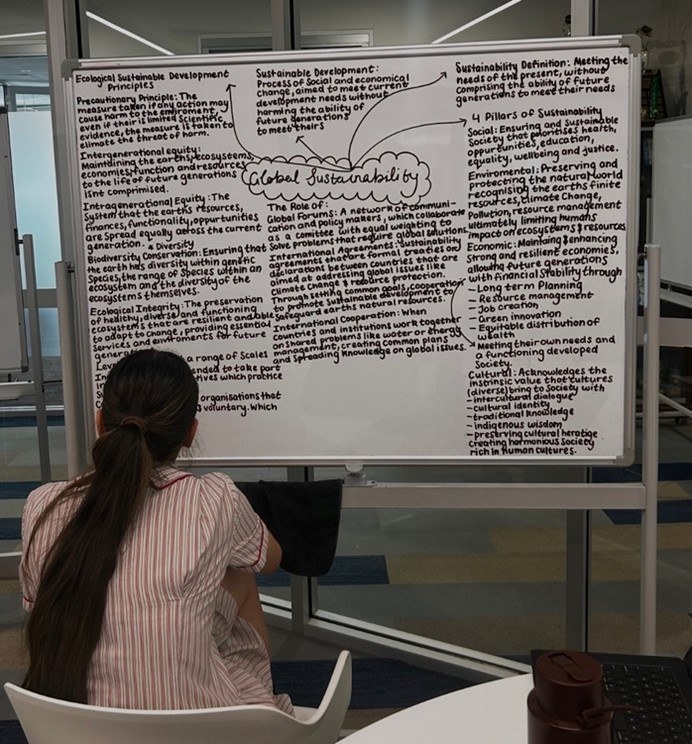 Ecological Sustainable Development
Principles
Precautionary Principle: The
measure taken if any action may
cause harm to the enviroment, by
even if their is limited scientific
evidence, the measure is taken to
climate the threat of harm.
Intergenerational equity:
Maintaining the earths, ecosystems,
economies, function and resources
to the life of future generations
isnt comprimised.
Intragenerational Equity: The
System that the earth's resources,
finances, functionality, oppurtunities
are spread equally across the current
generation. & Diversity
Biodiversity Conservation: Ensuring that
the earth has diversity within genetic
Species, the range of Species within an
ecosystem and the diversity of the
ecosystems themselves.
Ecological Integrity: The preservation
of healthy, diverse and functioning
ecosystems that are resilient and able
to adapt to change, providing essential
services and enviroments for future
generat
Leve a range of Scales
In ended to take part
in ives which practice
Su
organisations that
s voluntary. Which
Sustainable Development:
Process of Social and economical
change, aimed to meet current
development needs without
harming the ability of
future generations
to meet theirs
Global Sustainability
The Role of:
Global Forums: A network of communi-
cation and policy makers, which collaborate
as a comitee with equal weighting to
Solve problems that require global solutions
International Agreements: Sustainability
agreements that are formal treaties or
declarations between countries that are
aimed at addressing global issues like
climate change & resource protection.
Through setting common goals, cooperation
to promote sustainable development to
safeguard earths natural resources.
International Cooperation: When
countries and institutions work together
on shared problems like water or energy
management, creating common plans
and spreading knowledge on global issues.
Sustainability Definition: Meeting the
needs of the present, without
comprising the ability of future
generations to meet their needs
4 Pillars of Sustainability
Social: Ensuring and sustainable
Society that prioritises health,
oppurtunities, education,
equality, wellbeing and justice.
Enviromental: Preserving and
protecting the natural world
recognising the earths finite
resources, climate Change,
Pollution, resource management
ultimately limiting humans
impact on ecosystems & resources
Economic: Maintaing & enhancing
Strong and resilient economies,
allowing future Generations
with financial Stability through
- Long term Planning
- Resource management
- Job creation
- Green innovation
- Equitable distribution of
wealth
Meeting their own needs and
a functioning developed
Society.
Cultural: Acknowledges the
instrinsic value that cultures
(diverse) bring to Society with
- intercultural dialogue
- cultural identity
- traditional knowledge
- indigenous wisdom
- preserving cultural heratige
Creating harmonious Society
rich in human cultures.